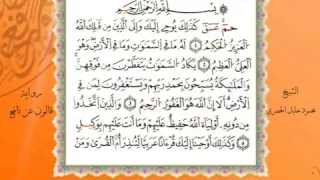 بِسْمِ اللَّهِ الرَّحْمَٰنِ الرَّحِيمِ
حمٓ عٓسٓقٓ كَذَٰلِكَ يُوحِي إِلَيْكَ وَإِلَى الَّذِينَ مِن قَبْلِكَ اللَّهُ
الْعَزِيزُ الْحَكِيمُ لَهُ مَا فِي السَّمَٰوَٰتِ وَمَا فِي الْأَرْضِ وَهُوَ
الْعَلِيُّ الْعَظِيمُ يَكَادُ السَّمَٰوَٰتُ يَتَفَطَّرْنَ مِن فَوْقِهِنَّ
وَالْمَلَٰٓئِكَةُ يُسَبِّحُونَ بِحَمْدِ رَبِّهِمْ وَيَسْتَغْفِرُونَ لِمَن
فِي الْأَرْضِ أَلَا إِنَّ اللَّهَ هُوَ الْغَفُورُ الرَّحِيمُ وَالَّذِينَ اتَّخَذُوا
مِن دُونِهِ أَوْلِيَاءَ اللَّهُ حَفِيظٌ عَلَيْهِمْ وَمَا أَنتَ عَلَيْهِم بِوَكِيلٍ
وَكَذَٰلِكَ أَوْحَيْنَا إِلَيْكَ قُرْءَانًا عَرَبِيًّا لِّتُنذِرَ أُمَّ الْقُرَىٰ وَمَنْ
الشيخ
محمود خليل الحصري
رواية
قالون عن نافع